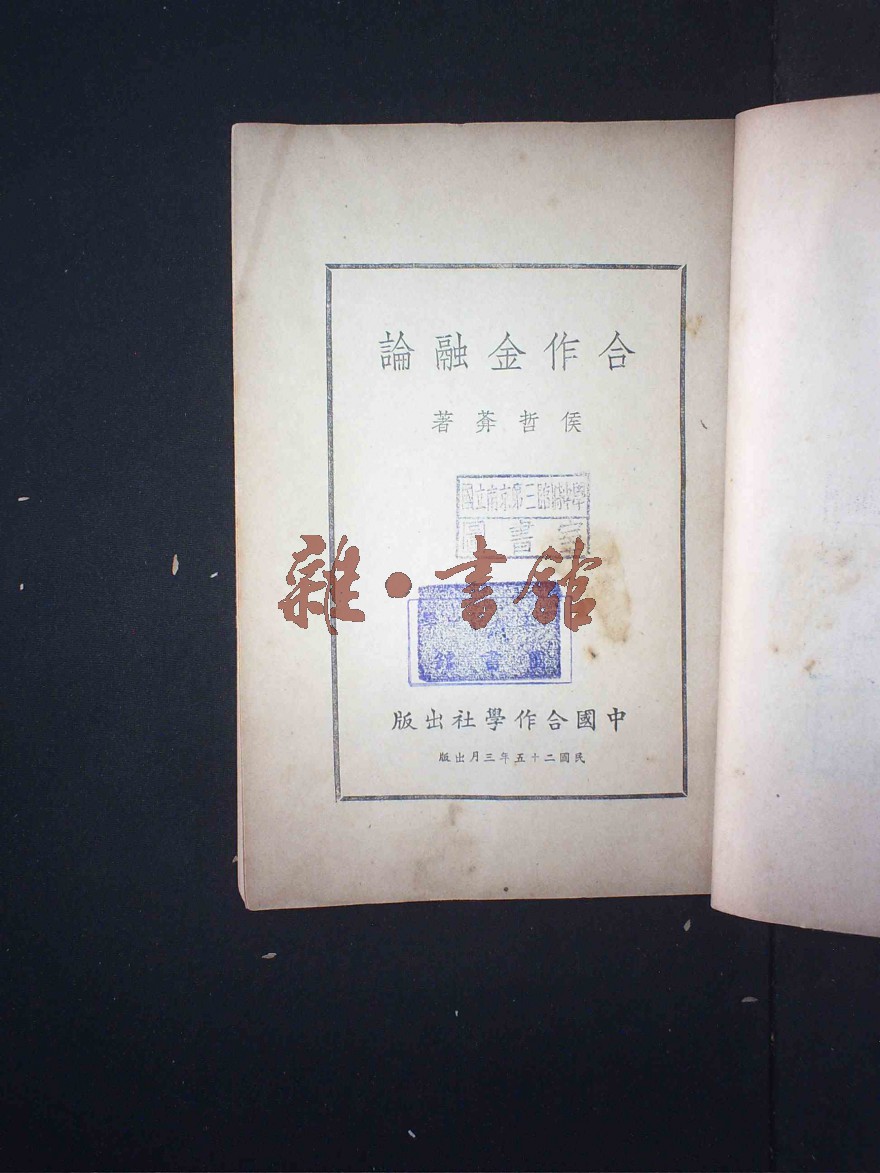 合作金融論
侯哲葊著
國立南京第三臨時中學
圖書室
雜·書館
圖書館
中國合作學社出版
民國二十五年三月出版